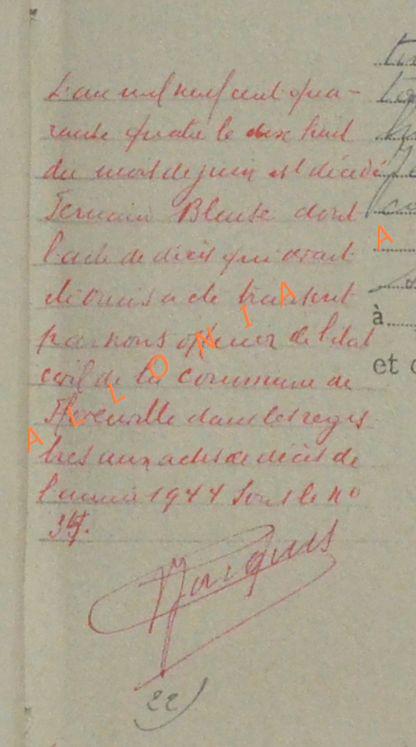 L'an mil neuf cent qua-
rante quatre le dix huit
du mois de juin est décédé
Blaise dont
l'acte de décès qui avait
été omis a été transcrit
par nous officier de l'état
civil de la commune de
dans les regis
tres aux actes de décès de
l'année 1944 sous le no
22)
ALLONIA A
à